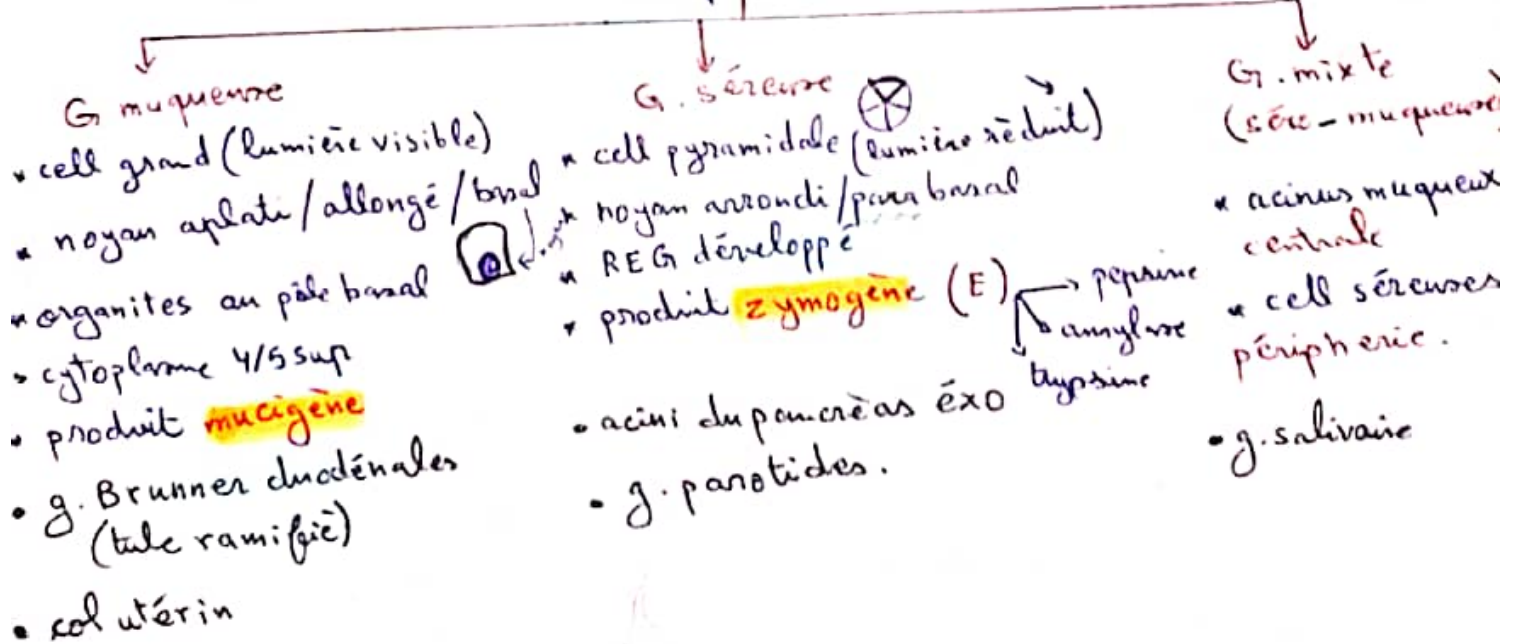 G muqueuse
* cell grand (lumière visible)
* noyau aplati/allongé/basal
* organites au pôle basal
* cytoplasme 4/5 sup
* produit mucigène
• g. Brunner duodénales
(tube ramifié)
• col utérin
G. séreuse
* cell pyramidale (lumière rèduit)
* noyau arrondi/para basal
* REG développé
* produit zymogène (E)
pepsine
amylase
trypsine
• acini du pancrèas éxo
• g. parotides.
G. mixte
(séro-muqueuse)
* acinus muqueux
centrale
* cell séreuses
péripherie.
• g. salivaire